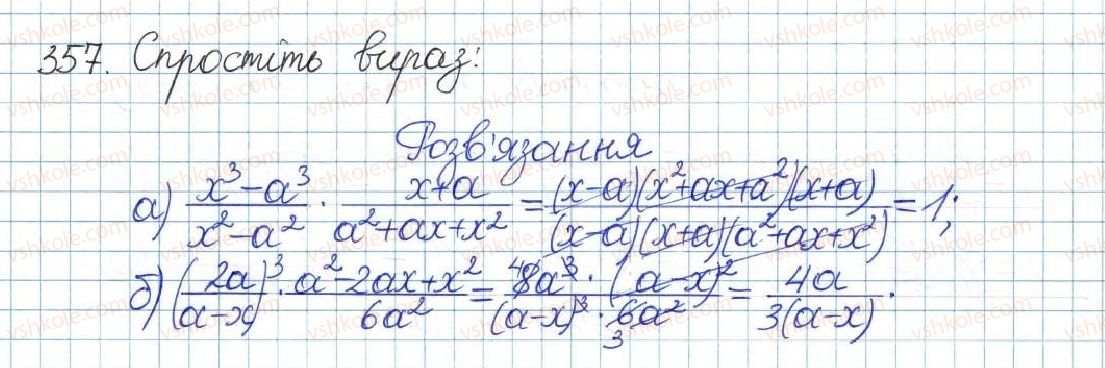 357. Спростіть вираз:
Розв'язання
а) \frac{x^3-a^3}{x^2-a^2} \cdot \frac{x+a}{a^2+ax+x^2} = \frac{(x-a)(x^2+ax+a^2)(x+a)}{(x-a)(x+a)(a^2+ax+x^2)} = 1;
б) \left(\frac{2a}{a-x}\right)^3 \cdot \frac{a^2-2ax+x^2}{6a^2} = \frac{^4 8a^3 \cdot (a-x)^2}{(a-x)^3 \cdot 6_3a^2} = \frac{4a}{3(a-x)}.